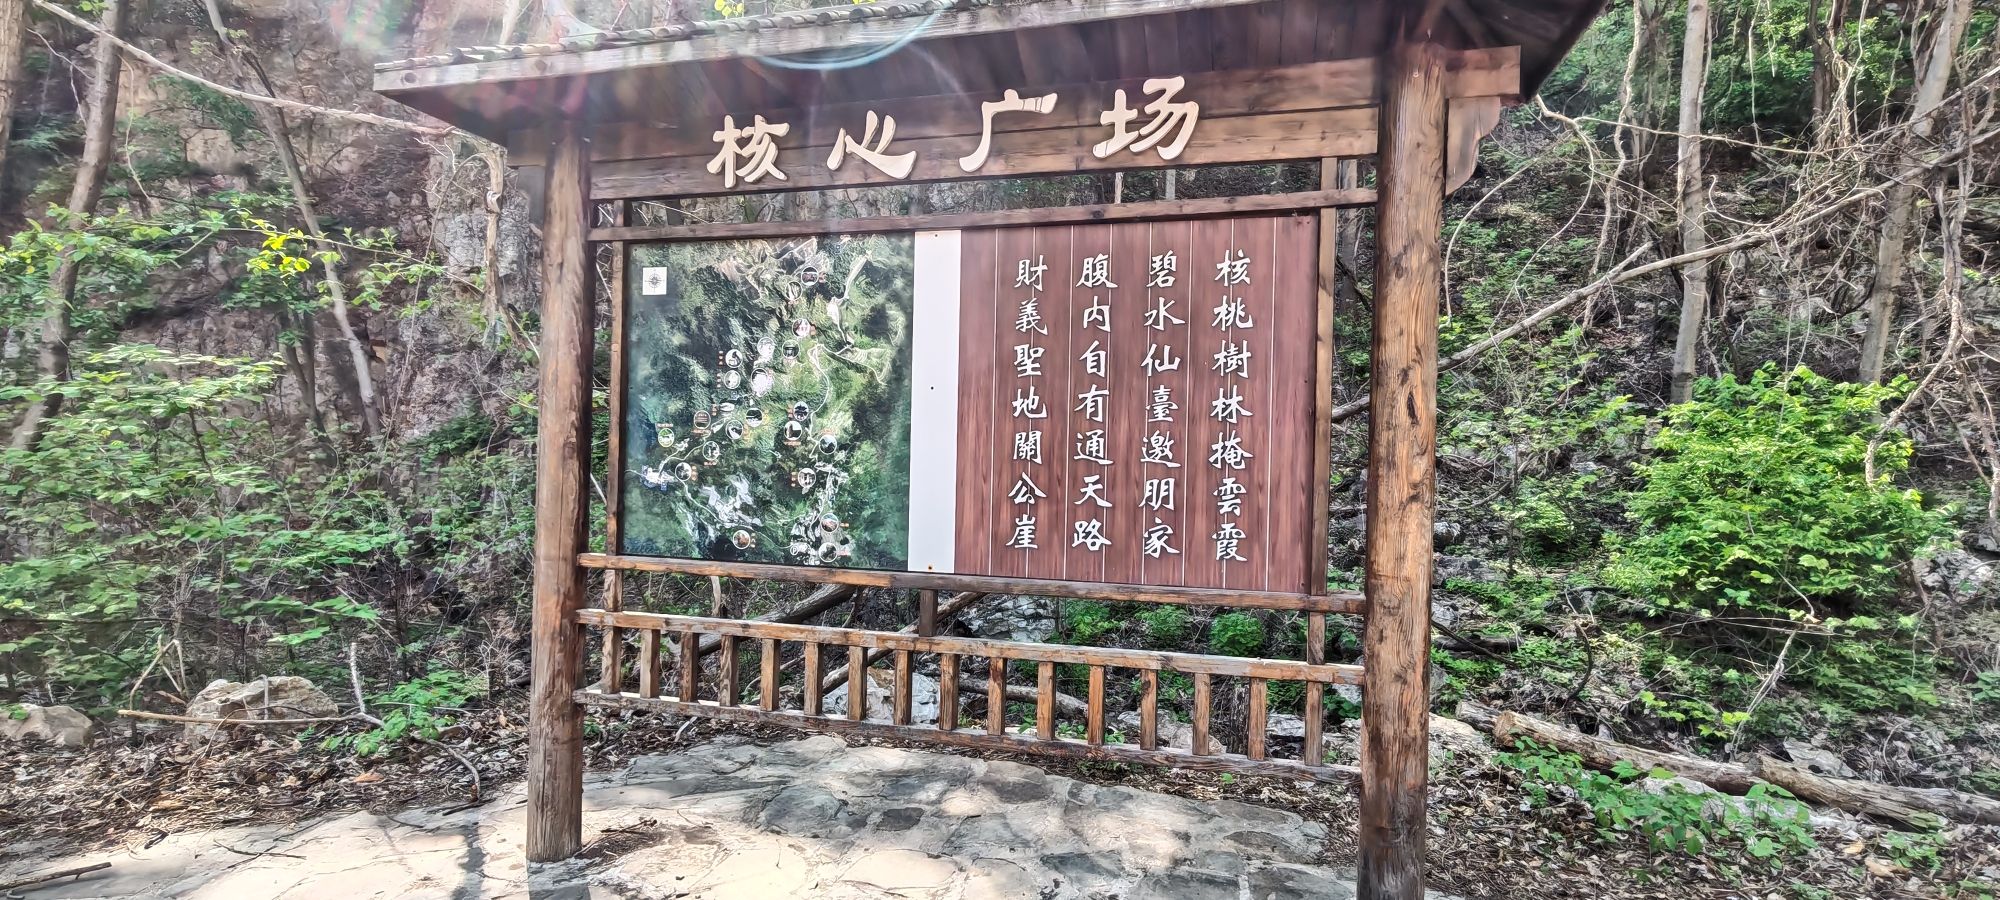 核心广场
核桃樹林掩雲霞
碧水仙臺邀朋家
腹内自有通天路
財義聖地關公崖